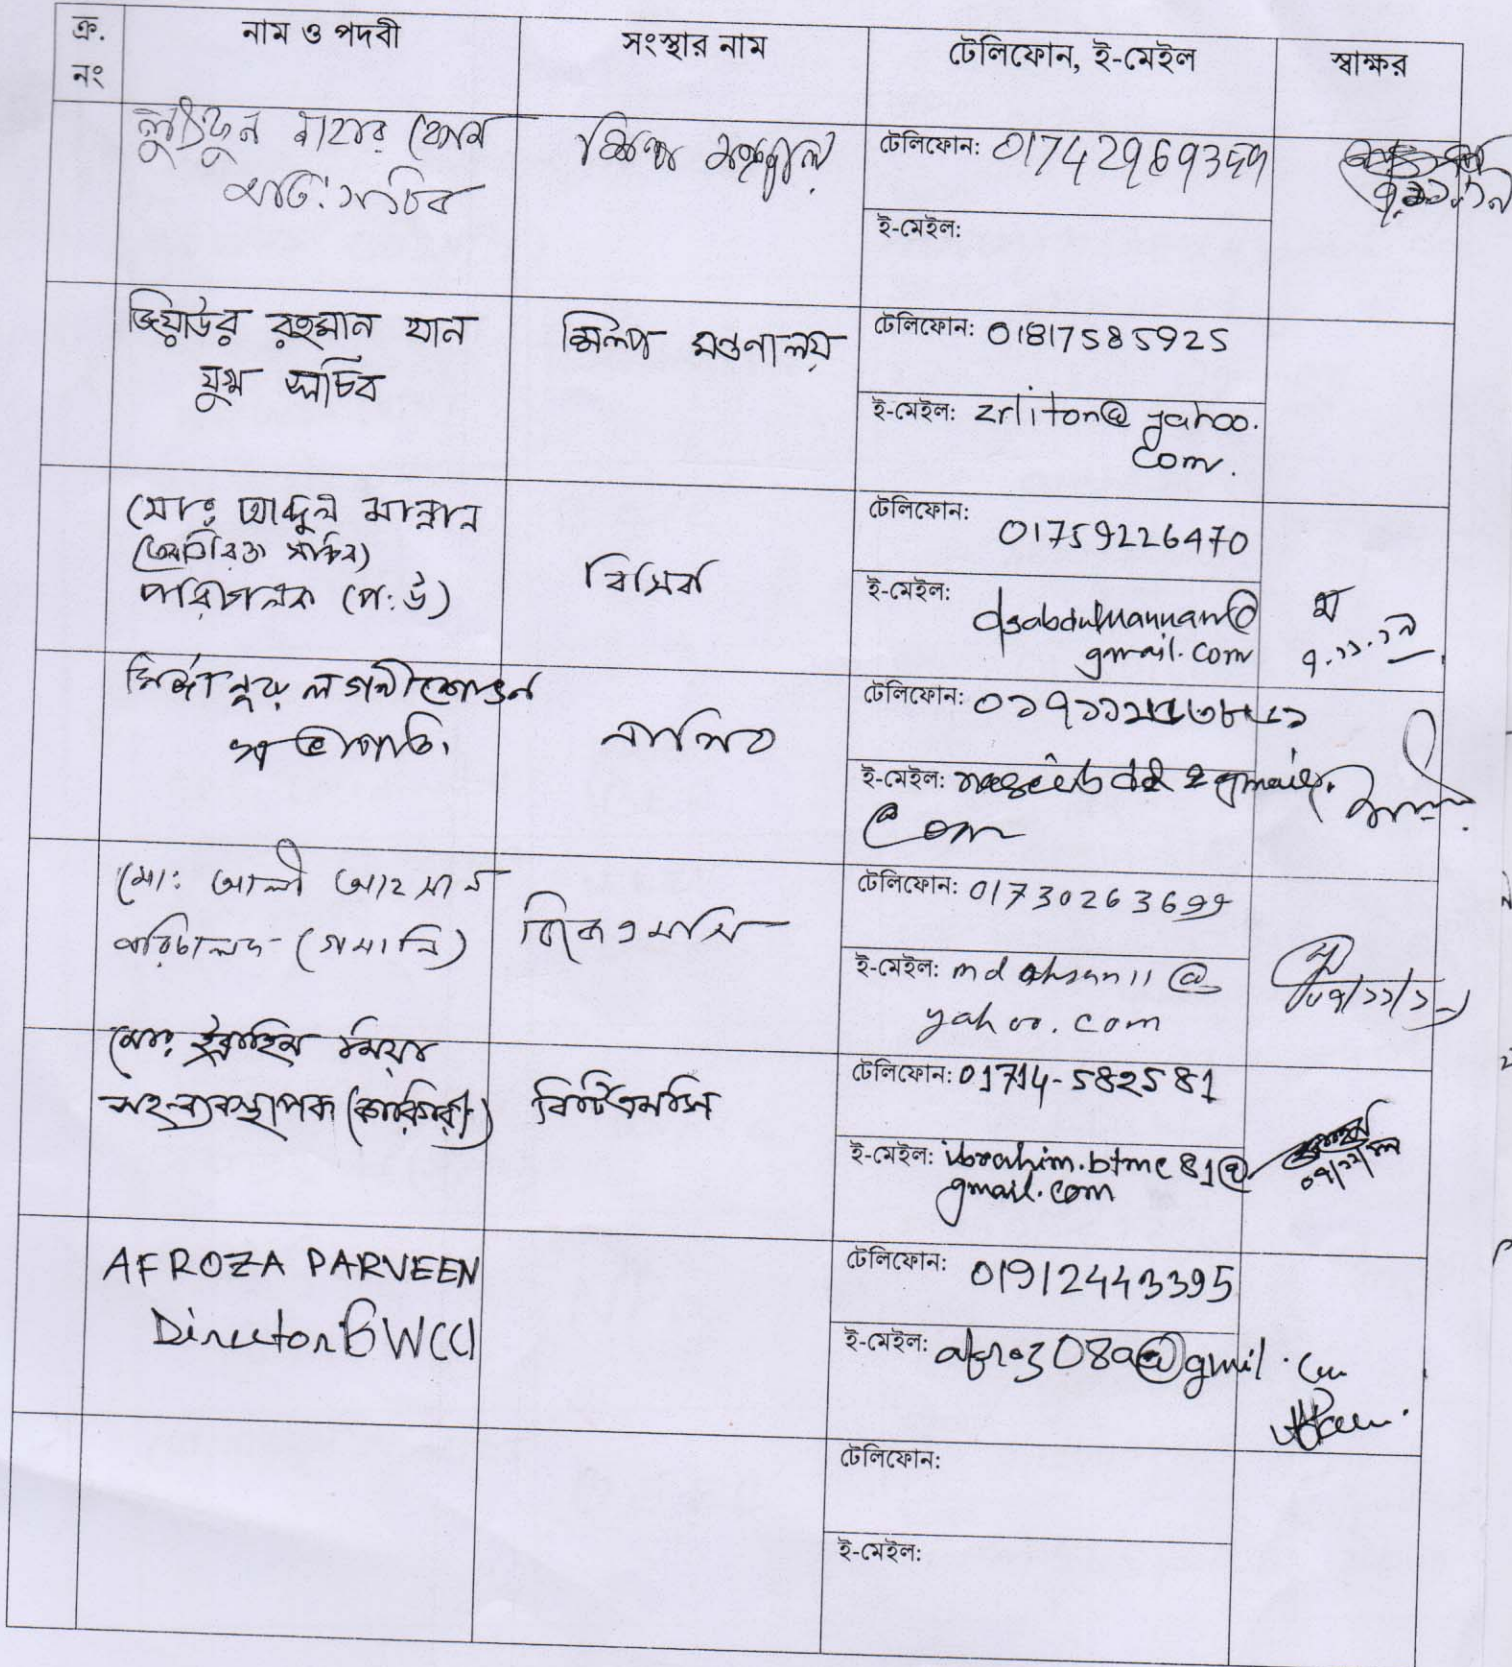 ক্র. নং
নাম ও পদবী
সংস্থার নাম
টেলিফোন, ই-মেইল
স্বাক্ষর
লুৎফুন নাহার বেগম
অতি: সচিব
শিল্প মন্ত্রণালয়
টেলিফোন:
ই-মেইল:
জিয়াউর রহমান খান
যুগ্ম সচিব
শিল্প মন্ত্রনালয়
টেলিফোন: 01817585925
ই-মেইল: zrliton@yahoo.
com.
মোঃ আব্দুল মান্নান
(অতিরিক্ত সচিব)
পরিচালক (প: উ)
বিসিক
টেলিফোন:
01759226470
ই-মেইল:
dsabdulmannan@
gmail.com
৭.১১.১৯
মির্জা নুরুল গনী শোভন
সভাপতি
নাসিব
টেলিফোন:
ই-মেইল:
com
মো: আলী আহসান
পরিচালক
টেলিফোন: 01730263699
ই-মেইল: mdahsan11@
yahoo.com
০৭/১১/১৯
মোঃ ইব্রাহিম মিয়া
সহ-ব্যবস্থাপক (কারিগরী)
বিটিএমসি
টেলিফোন: 01714-582581
ই-মেইল: ibrahim.btmc81@
gmail.com
০৭/১১/১৯
AFROZA PARVEEN
Director BWCCI
টেলিফোন: 01912443395
ই-মেইল:
টেলিফোন:
ই-মেইল: